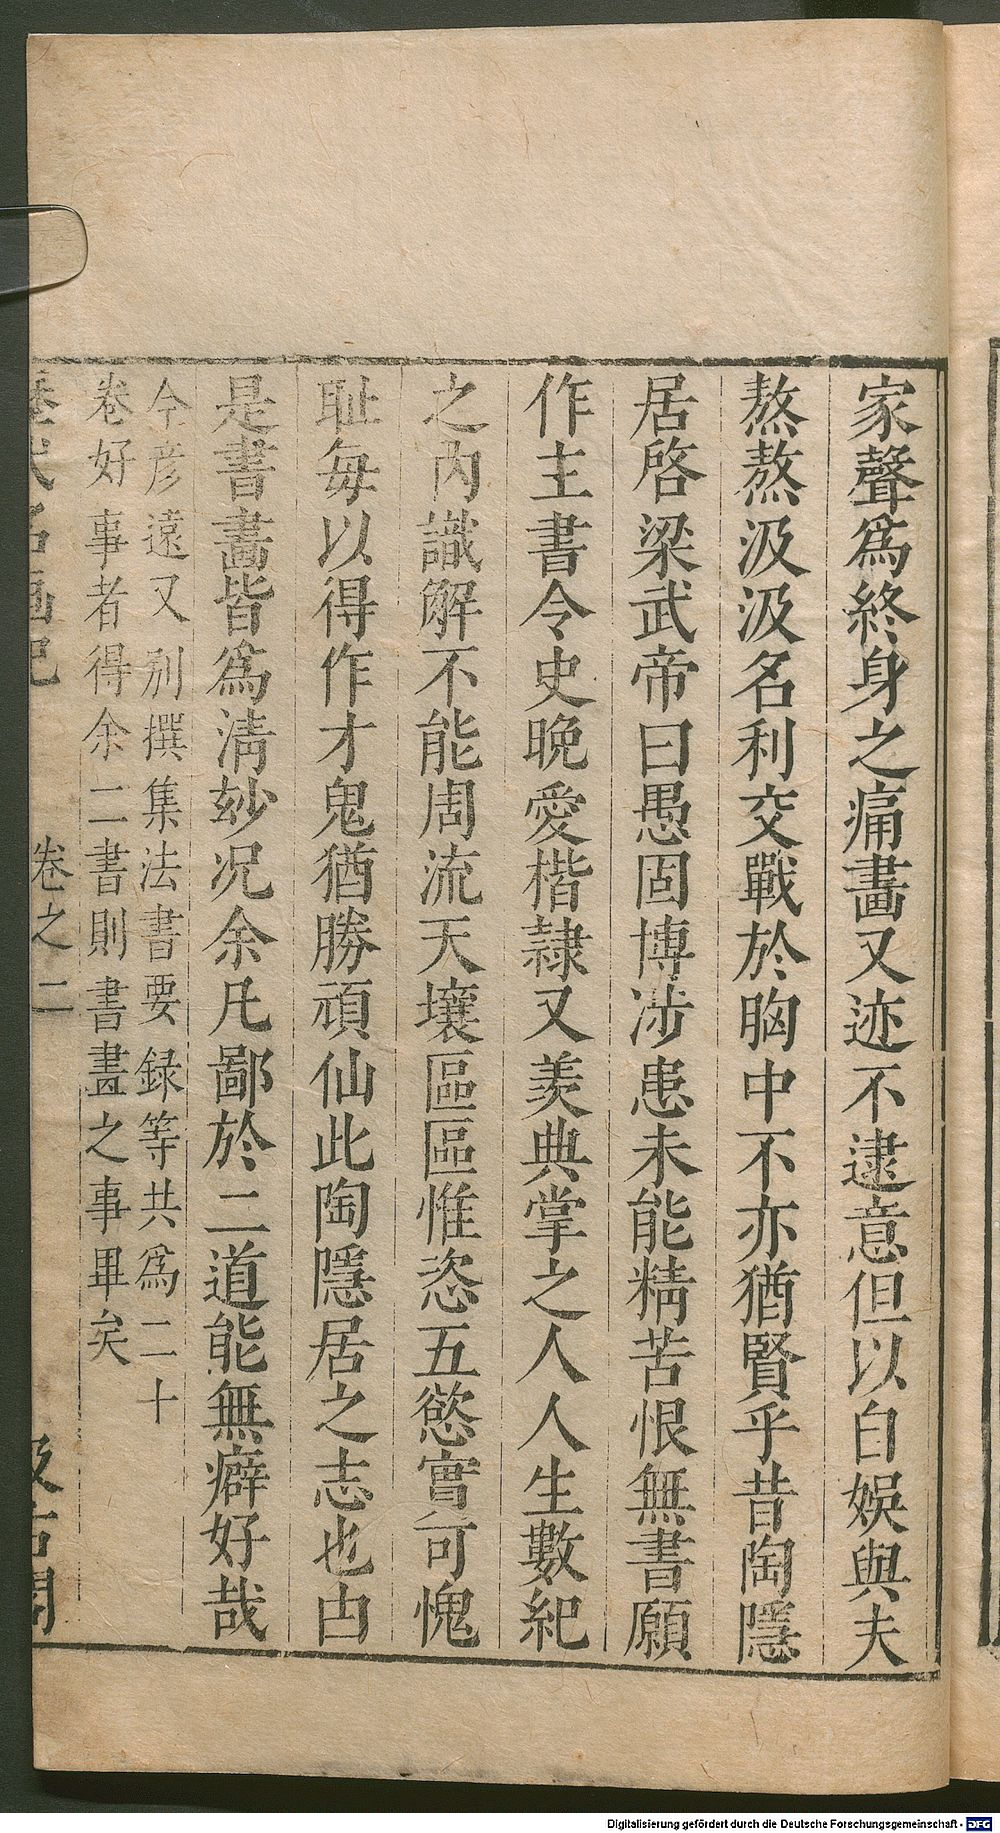 家聲爲終身之痛畵又迹不逮意但以自娛與夫
熬熬汲汲名利交戰於胸中不亦猶賢乎昔陶隱
居啓梁武帝曰愚固博涉患未能精苦恨無書願
作主書令史晚愛楷隷又羨典掌之人人生數紀
之內識解不能周流天壤區區惟恣五慾實可愧
耻每以得作才鬼猶勝頑仙此陶隱居之志也古
是書畵皆爲清妙况余凡鄙於二道能無癖好哉
今彦遠又别撰集法書要録等共爲二十
卷好事者得余二書則書畫之事畢矣
歷代名画記 卷之二 汲古閣
Digitalisierung gefördert durch die Deutsche Forschungsgemeinschaft - DFG